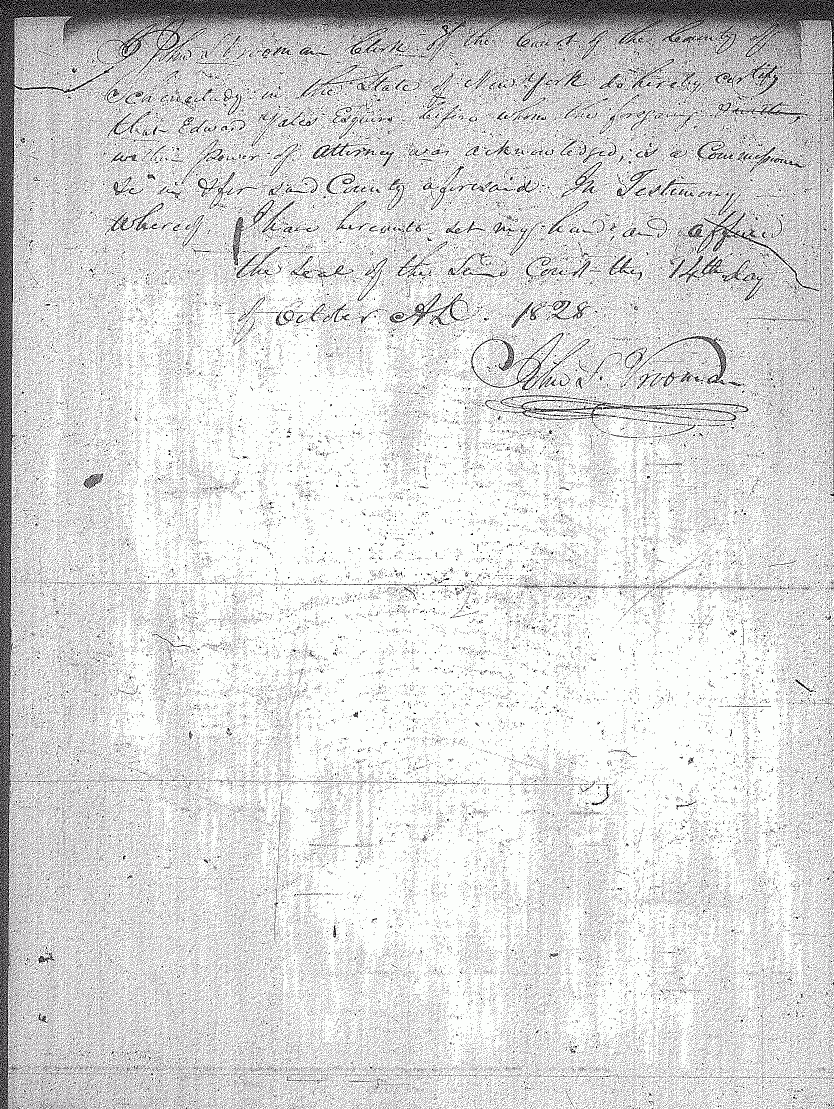 I John S Vrooman Clerk of the Court of the County of
Schenectady in the State of New York do hereby certify
that Edward Yates Esquire before whom the foregoing
within power of attorney was acknowledged, is a Commissioner
&c in & for said County aforesaid. In Testimony
whereof I have hereunto set my hand and affixed
the Seal of the said Court this 14th day
of October AD. 1828.
John S. Vrooman